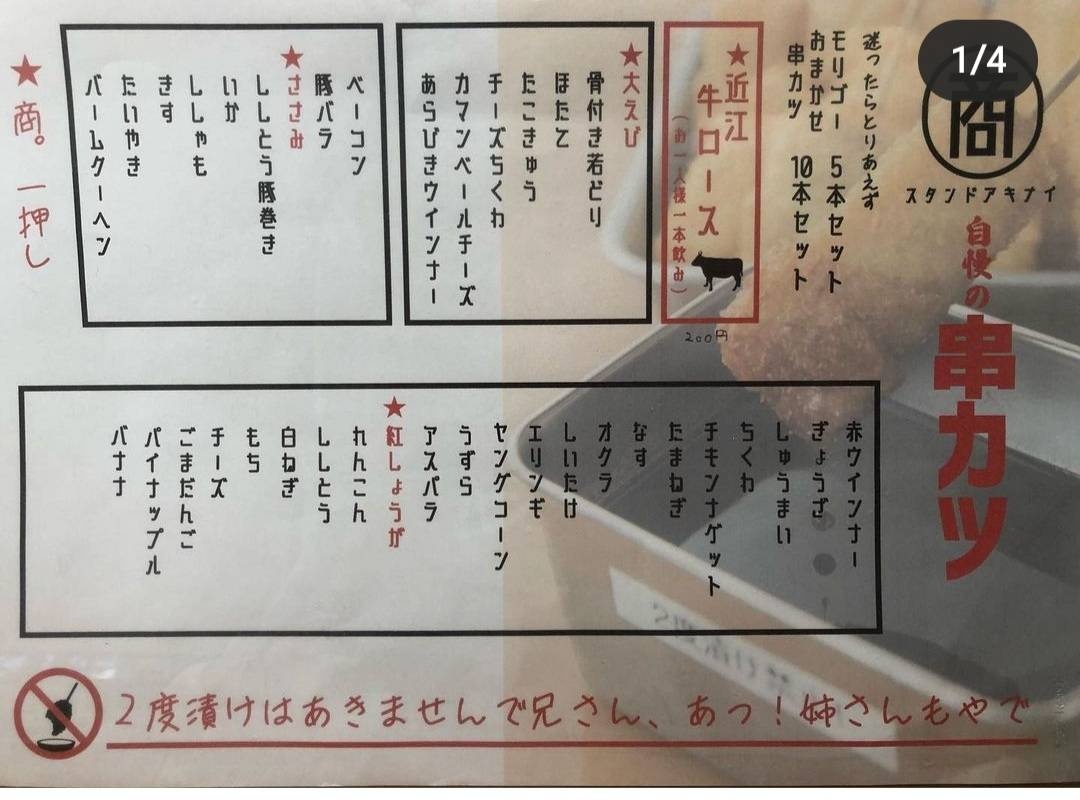 1/4
商
スタンドアキナイ
自慢の
串カツ
迷ったらとりあえず
モリゴー 5本セット
おまかせ
串カツ 10本セット
★近江
牛ロース
(お一人様一本飲み)
200円
★大えび
骨付き若どり
ほたて
たこきゅう
チーズちくわ
カマンベールチーズ
あらびきウインナー
ベーコン
豚バラ
★ささみ
ししとう豚巻き
いか
ししゃも
きす
たいやき
バームクーヘン
★商。一押し
赤ウインナー
ぎょうざ
しゅうまい
ちくわ
チキンナゲット
たまねぎ
なす
オクラ
しいたけ
エリンギ
ヤングコーン
うずら
アスパラ
★紅しょうが
れんこん
ししとう
白ねぎ
もち
チーズ
ごまだんご
パイナップル
バナナ
2度漬けはあきませんで兄さん、あっ!姉さんもやで